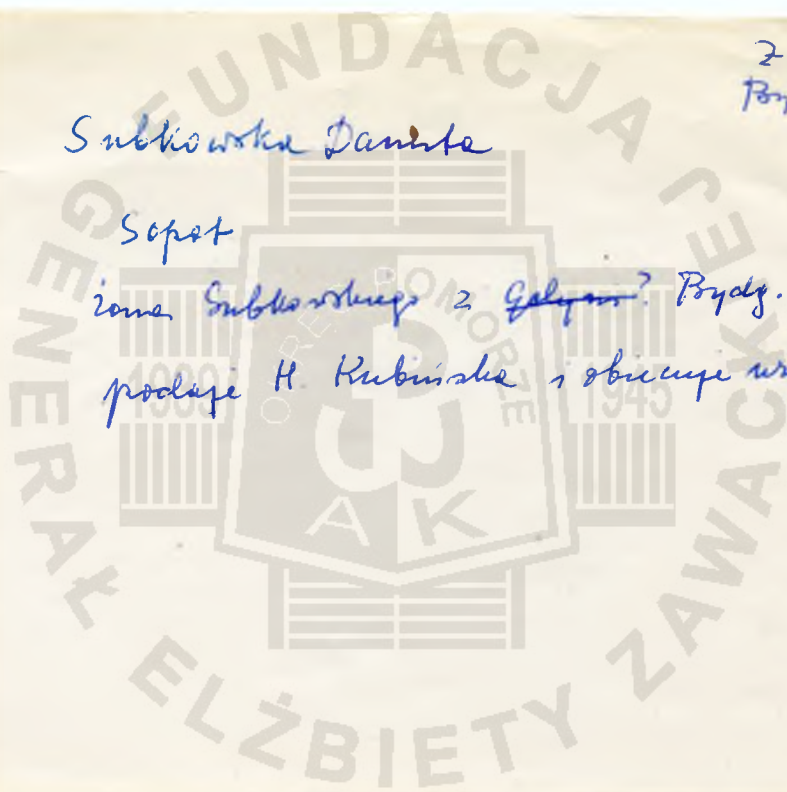 Z
Byd
Subkowska Danuta
Sopot
żona Subkowskiego z Gdyni? Bydg.
podaje H. Kubińska i obiecuje
FUNDACJA GENERAŁ ELŻBIETY ZAWACK
OKRĘG POMORZE
1939 1945
AK